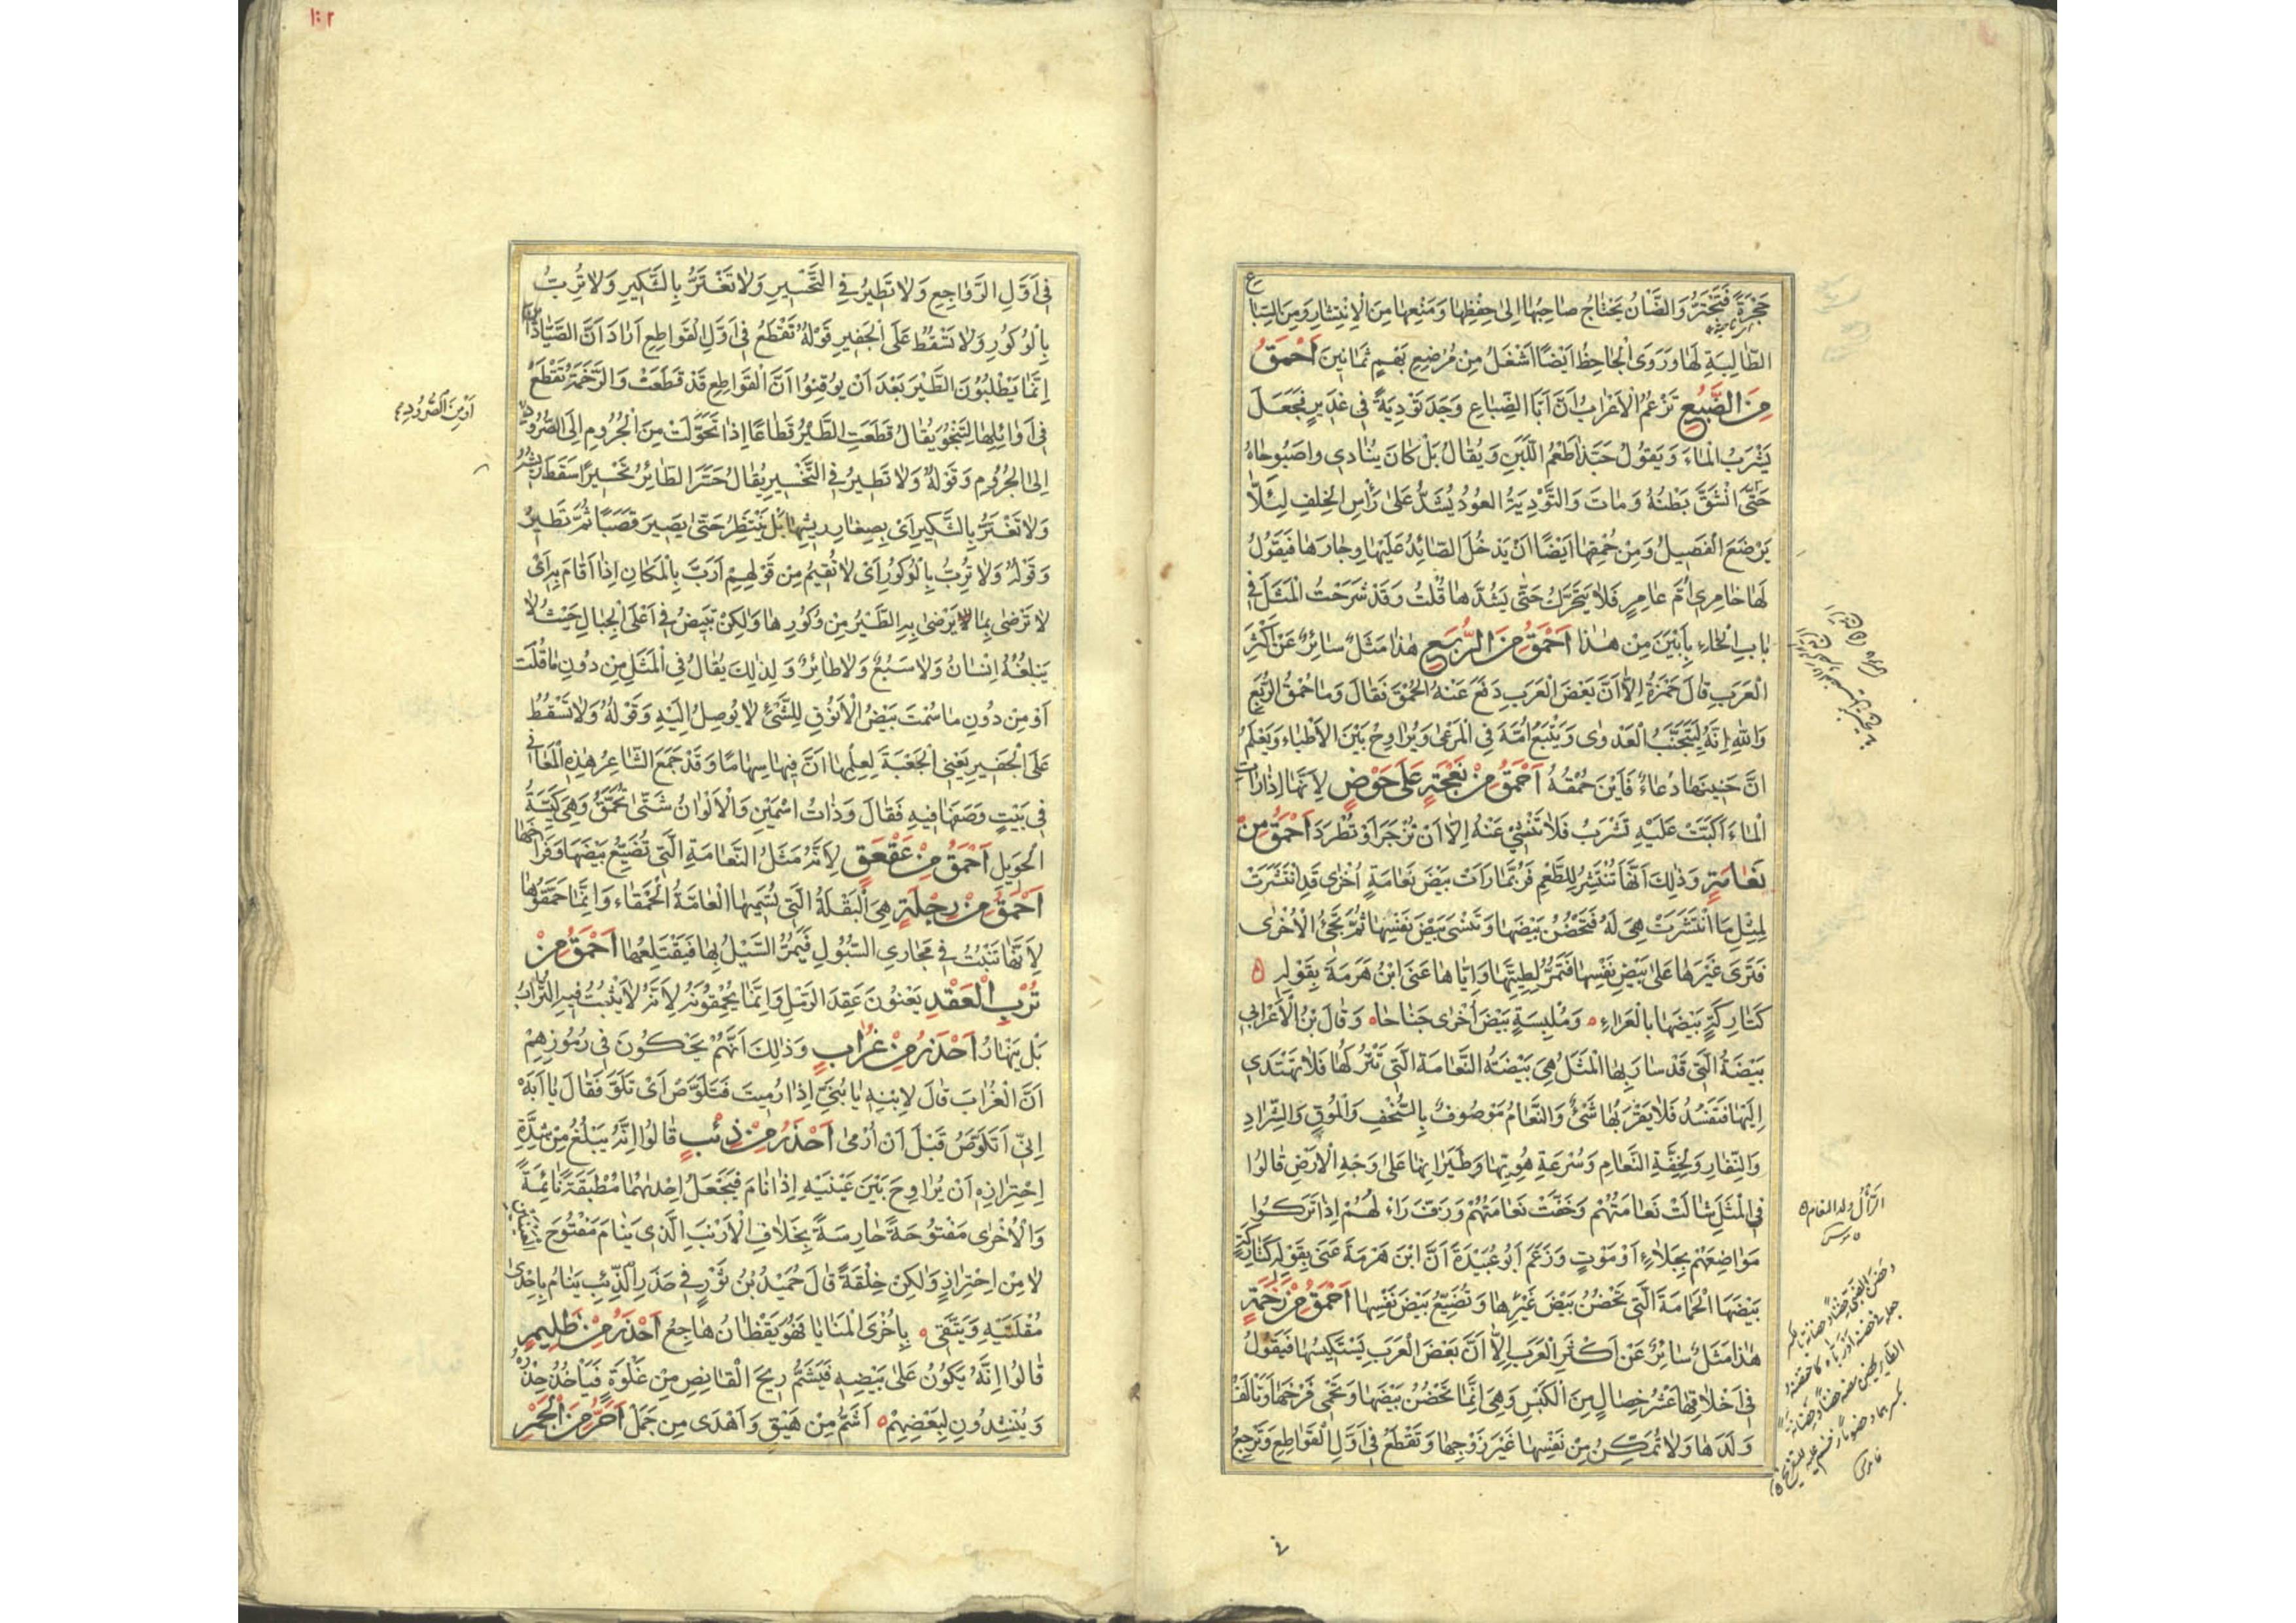 حَجْرَةً فَتَجْتَرُّ وَالضَّانُ يَحْتَاجُ صَاحِبُهَا اِلَى حِفْظِهَا وَمَنْعِهَا مِنَ الْاِنْتِشَارِ وَمِنَ السِّبَاع
الطَّالِبَةِ لَهَا وَرَوَى الْجَاحِظُ اَيْضًا اَشْغَلُ مِنْ مُرْضِعِ بَهْمٍ ثَمَانِينَ اَحْمَقُ
مِنَ الضَّبُعِ تَزْعُمُ الْاَعْرَابُ اَنَّ اَبَا الضِّبَاعِ وَجَدَ تَوْدِيَةً فِي غَدِيرٍ فَجَعَلَ
يَشْرَبُ الْمَاءَ وَيَقُولُ حَبَّذَا طَعْمُ اللَّبَنِ وَيُقَالُ بَلْ كَانَ يُنَادِي وَاصَبُوحَاهُ
حَتَّى انْشَقَّ بَطْنُهُ وَمَاتَ وَالتَّوْدِيَةُ العُودُ يُشَدُّ عَلَى رَأْسِ الخِلْفِ لِئَلَّا
يَرْضَعَ الْفَصِيلُ وَمِنْ حُمْقِهَا اَيْضًا اَنْ يَدْخُلَ الصَّائِدُ عَلَيْهَا وِجَارَهَا فَيَقُولُ
لَهَا خَامِرِي اُمَّ عَامِرٍ فَلَا يَتَحَرَّكُ حَتَّى يَشُدَّهَا قُلْتُ وَقَدْ شَرَحْتُ الْمَثَلَ فِي
بَابِ الْخَاءِ بِاَبْيَنَ مِنْ هٰذَا اَحْمَقُ مِنَ الرُّبَعِ هٰذَا مَثَلٌ سَائِرٌ عَنْ اَكْثَرِ
الْعَرَبِ قَالَ حَمْزَةُ اِلَّا اَنَّ بَعْضَ الْعَرَبِ دَفَعَ عَنْهُ الحُمْقَ فَقَالَ وَمَا حُمْقُ الرُّبَعِ
وَاللّٰهِ اِنَّهُ لَيَتَجَنَّبُ الْعَدْوَى وَيَتْبَعُ اُمَّهُ فِي الْمَرْعَى وَيُرَاوِحُ بَيْنَ الْاَطْبَاءِ وَيَعْلَمُ
اَنَّ حَنِينَهَا دُعَاءٌ فَاَيْنَ حُمْقُهُ اَحْمَقُ مِنْ نَعْجَةٍ عَلَى حَوْضٍ لِاَنَّهَا اِذَا رَاَت
الْمَاءَ اَكَبَّتْ عَلَيْهِ تَشْرَبُ فَلَا تَنْثَنِي عَنْهُ اِلَّا اَنْ تُزْجَرَ اَوْ تُطْرَدَ اَحْمَقُ مِنْ
نَعَامَةٍ وَذٰلِكَ اَنَّهَا تَنْتَشِرُ لِلطَّعْمِ فَرُبَّمَا رَاَتْ بَيْضَ نَعَامَةٍ اُخْرَى قَدِ انْتَشَرَتْ
لِمِثْلِ مَا انْتَشَرَتْ هِيَ لَهُ فَتَحْضُنُ بَيْضَهَا وَتَنْسَى بَيْضَ نَفْسِهَا ثُمَّ تَجِئُ الْاُخْرَى
فَتَرَى غَيْرَهَا عَلَى بَيْضِ نَفْسِهَا فَتَمُرُّ لِطِيَّتِهَا وَاِيَّاهَا عَنَى ابْنُ هَرْمَةَ بِقَوْلِهِ
كَتَارِكَةٍ بَيْضَهَا بِالْعَرَاءِ وَمُلْبِسَةٍ بَيْضَ اُخْرَى جَنَاحَا وَقَالَ بْنُ الْاَعْرَابِيِّ
بَيْضَةُ الَّتِي قَدْ سَارَ بِهَا الْمَثَلُ هِيَ بَيْضَةُ النَّعَامَةِ الَّتِي تَتْرُكُهَا فَلَا تَهْتَدِي
اِلَيْهَا فَتَفْسُدُ فَلَا يَقْرَبُهَا شَيْءٌ وَالنَّعَامُ مَوْصُوفٌ بِالسُّخْفِ وَالْمُوقِ وَالشِّرَادِ
وَالنِّفَارِ وَلِخِفَّةِ النَّعَامِ وَسُرْعَةِ هُوِيِّهَا وَطَيَرَانِهَا عَلَى وَجْهِ الْاَرْضِ قَالُوا
فِي الْمَثَلِ شَالَتْ نَعَامَتُهُمْ وَخَفَّتْ نَعَامَتُهُمْ وَزَفَّ رَاءُلُهُمْ اِذَا تَرَكُوا
مَوَاضِعَهُمْ بِجَلَاءٍ اَوْ مَوْتٍ وَزَعَمَ اَبُو عُبَيْدَةَ اَنَّ ابْنَ هَرْمَةَ عَنَى بِقَوْلِهِ كَتَارِكَةٍ
بَيْضَهَا الْحَمَامَةَ الَّتِي تَحْضُنُ بَيْضَ غَيْرِهَا وَتُضَيِّعُ بَيْضَ نَفْسِهَا اَحْمَقُ مِنْ رَخَمَةٍ
هٰذَا مَثَلٌ سَائِرٌ عَنْ اَكْثَرِ الْعَرَبِ اِلَّا اَنَّ بَعْضَ الْعَرَبِ يَسْتَكِيسُهَا فَيَقُولُ
فِي اَخْلَاقِهَا عَشْرُ خِصَالٍ مِنَ الْكَيْسِ وَهِيَ اِنَّمَا تَحْضُنُ بَيْضَهَا وَتَحْمِي فَرْخَهَا وَتَأْلَفُ
وَلَدَهَا وَلَا تُمَكِّنُ مِنْ نَفْسِهَا غَيْرَ زَوْجِهَا وَتَقْطَعُ فِي اَوَّلِ الْقَوَاطِعِ وَتَرْجِعُ
الرَّأْلُ ولد النعام
١٠٢
فِي اَوَّلِ الرَّوَاجِعِ وَلَا تَطِيرُ فِي التَّحْسِيرِ وَلَا تَغْتَرُّ بِالشَّكِيرِ وَلَا تُرِبُّ
بِالْوُكُورِ وَلَا تَسْقُطُ عَلَى الْجَفِيرِ قَوْلُهُ تَقْطَعُ فِي اَوَّلِ الْقَوَاطِعِ اَرَادَ اَنَّ الصَّيَّادِينَ
اِنَّمَا يَطْلُبُونَ الطَّيْرَ بَعْدَ اَنْ يُوقِنُوا اَنَّ الْقَوَاطِعَ قَدْ قَطَعَتْ وَالرَّخَمَةُ تَقْطَعُ
فِي اَوَائِلِهَا لِتَنْجُوَ يُقَالُ قَطَعَتِ الطَّيْرُ قِطَاعًا اِذَا تَحَوَّلَتْ مِنَ الْجُرُومِ اِلَى الصُّرُودِ
اَوْ مِنَ الصُّرُودِ
اِلَى الْجُرُومِ وَقَوْلُهُ وَلَا تَطِيرُ فِي التَّحْسِيرِ يُقَالُ حَسَّرَ الطَّائِرُ تَحْسِيرًا سَقَطَ رِيشُهُ
وَلَا تَغْتَرُّ بِالشَّكِيرِ اَيْ بِصِغَارِ رِيشِهَا بَلْ يَنْتَظِرُ حَتَّى يَصِيرَ قَصَبًا ثُمَّ تَطِيرُ
وَقَوْلُهُ وَلَا تُرِبُّ بِالْوُكُورِ اَيْ لَا تُقِيمُ مِنْ قَوْلِهِمْ اَرَبَّ بِالْمَكَانِ اِذَا اَقَامَ بِهِ اَيْ
لَا تَرْضَى بِمَا يَرْضَى بِهِ الطَّيْرُ مِنْ وُكُورِهَا وَلٰكِنْ تَبِيضُ فِي اَعْلَى الْجِبَالِ حَيْثُ لَا
يَبْلُغُهُ اِنْسَانٌ وَلَا سَبُعٌ وَلَا طَائِرٌ وَلِذٰلِكَ يُقَالُ فِي الْمَثَلِ مِنْ دُونِ مَا قُلْتَ
اَوْ مِنْ دُونِ مَا سُمْتَ بَيْضُ الْاَنُوقِ لِلشَّيْءِ لَا يُوصَلُ اِلَيْهِ وَقَوْلُهُ وَلَا تَسْقُطُ
عَلَى الْجَفِيرِ يَعْنِي الْجَعْبَةَ لِعِلْمِهَا اَنَّ فِيهَا سِهَامًا وَقَدْ جَمَعَ الشَّاعِرُ هٰذِهِ الْمَعَانِي
فِي بَيْتٍ وَصَفَهَا فِيهِ فَقَالَ وَذَاتُ اسْمَيْنِ وَالْاَلْوَانُ شَتَّى تُحَمَّقُ وَهِيَ كَيِّسَةُ
الْحَوِيلِ اَحْمَقُ مِنْ عَقْعَقٍ لِاَنَّهُ مَثَلُ النَّعَامَةِ الَّتِي تُضَيِّعُ بَيْضَهَا وَفِرَاخَهَا
اَحْمَقُ مِنْ رِجْلَةٍ هِيَ الْبَقْلَةُ الَّتِي تُسَمِّيهَا الْعَامَّةُ الْحَمْقَاءَ وَاِنَّمَا حَمَّقُوهَا
لِاَنَّهَا تَنْبُتُ فِي مَجَارِي السُّيُولِ فَيَمُرُّ السَّيْلُ بِهَا فَيَقْتَلِعُهَا اَحْمَقُ مِنْ
تُرْبِ الْعَقْدِ يَعْنُونَ عَقِدَ الرَّمْلِ وَاِنَّمَا يُحَمِّقُونَهُ لِاَنَّهُ لَا يَثْبُتُ فِيهِ التُّرَابُ
بَلْ يَنْهَارُ اَحْذَرُ مِنْ غُرَابٍ وَذٰلِكَ اَنَّهُمْ يَحْكُونَ فِي رُمُوزِهِمْ
اَنَّ الْغُرَابَ قَالَ لِابْنِهِ يَا بُنَيَّ اِذَا رُمِيتَ فَتَلَوَّصْ اَيْ تَلَوَّ فَقَالَ يَا اَبَهْ
اِنِّي اَتَلَوَّصُ قَبْلَ اَنْ اُرْمَى اَحْذَرُ مِنْ ذِئْبٍ قَالُوا اِنَّهُ يَبْلُغُ مِنْ شِدَّةِ
اِحْتِرَازِهِ اَنْ يُرَاوِحَ بَيْنَ عَيْنَيْهِ اِذَا نَامَ فَيَجْعَلُ اِحْدٰىهُمَا مُطْبَقَةً نَائِمَةً
وَالْاُخْرَى مَفْتُوحَةً حَارِسَةً بِخَلَافِ الْاَرْنَبِ الَّذِي يَنَامُ مَفْتُوحَ العينين
لَا مِنْ اِحْتِرَازٍ وَلٰكِنْ خِلْقَةً قَالَ حُمَيْدُ بْنُ ثَوْرٍ فِي حَذَرِ الذِّئْبِ يَنَامُ بِاِحْدَى
مُقْلَتَيْهِ وَيَتَّقِي بِاُخْرَى الْمَنَايَا فَهُوَ يَقْظَانُ هَاجِعُ اَحْذَرُ مِنْ ظَلِيمٍ
قَالُوا اِنَّهُ يَكُونُ عَلَى بَيْضِهِ فَيَشْتَمُّ رِيحَ الْقَانِصِ مِنْ غَلْوَةٍ فَيَأْخُذُ حِذْرَهُ
وَيُنْشِدُونَ لِبَعْضِهِمْ اَشَمُّ مِنْ هَيْقٍ وَاَهْدَى مِنْ جَمَلْ اَحَرُّ مِنَ الْجَمْرِ